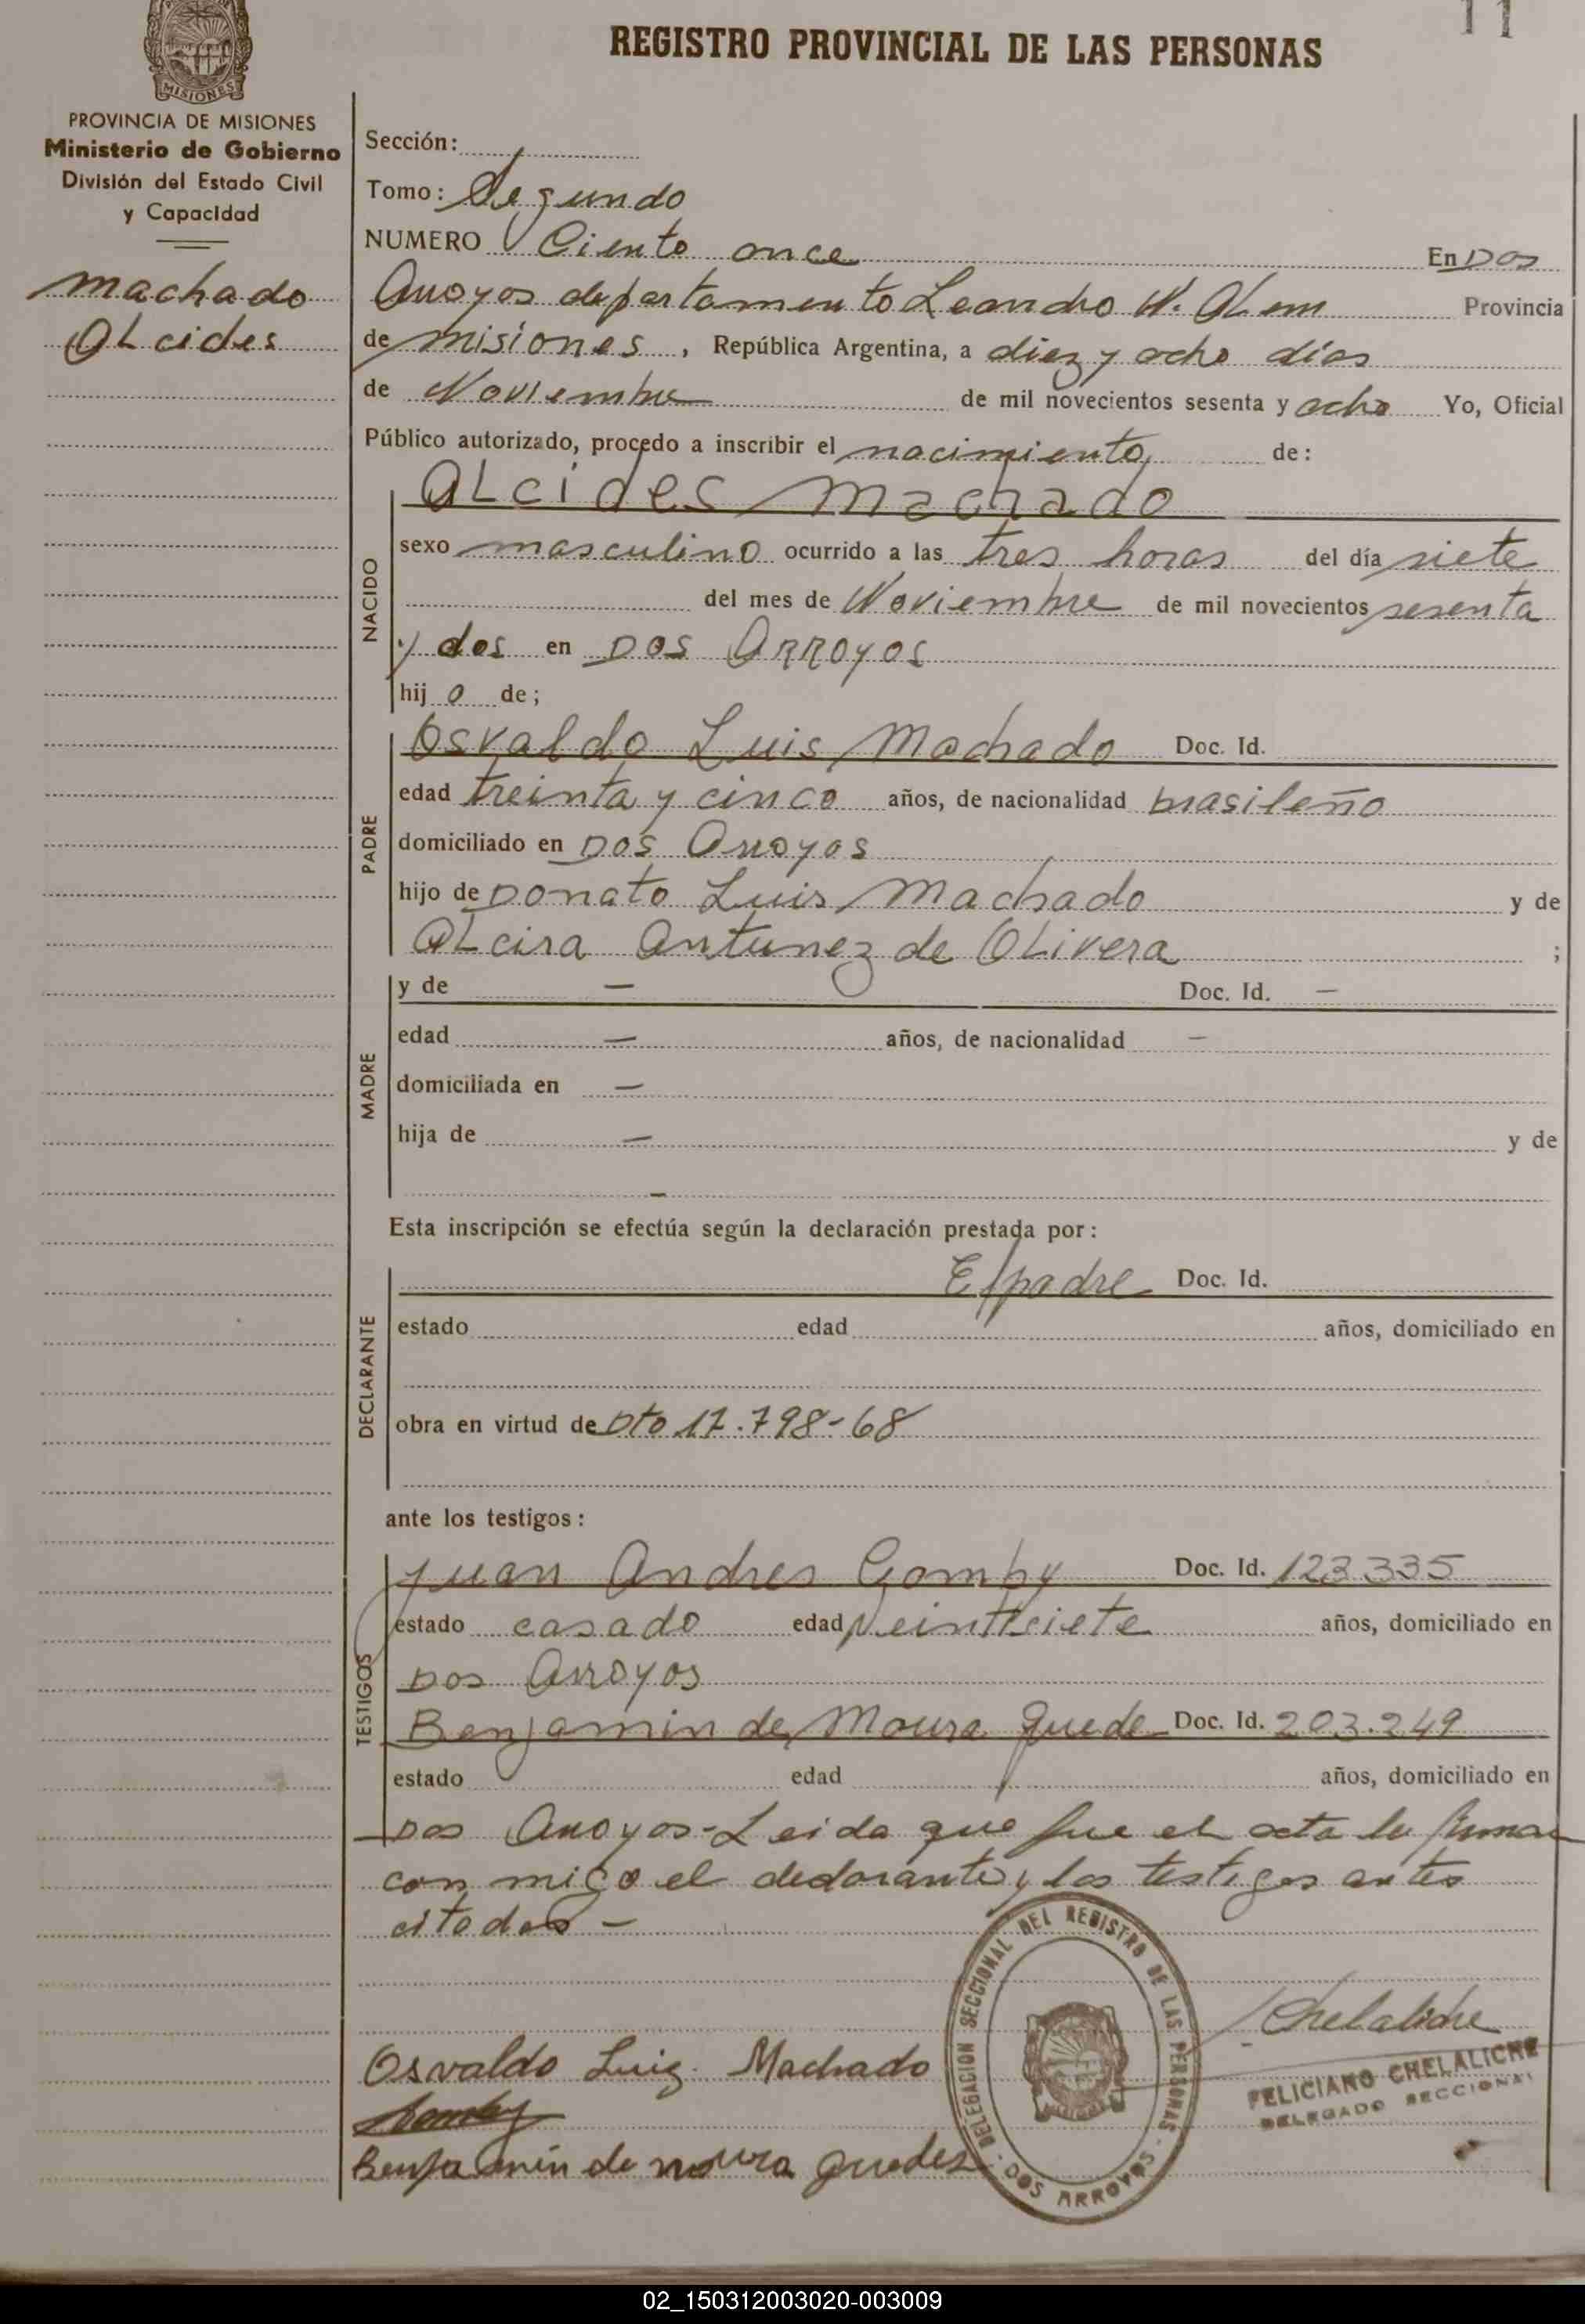 11
REGISTRO PROVINCIAL DE LAS PERSONAS
MISIONES
PROVINCIA DE MISIONES
Ministerio de Gobierno
División del Estado Civil
y Capacidad
machado
ALcides
Sección:
Tomo: Segundo
NUMERO Ciento once En Dos
Arroyos departamento Leandro N. ALem Provincia
de misiones, República Argentina, a diez y ocho días
de Noviembre de mil novecientos sesenta y ocho Yo, Oficial
Público autorizado, procedo a inscribir el nacimiento de:
NACIDO
ALcides machado
sexo masculino ocurrido a las tres horas del día siete
del mes de Noviembre de mil novecientos sesenta
y dos en Dos ARROYOS
hijo de;
PADRE
Osvaldo Luis Machado Doc. Id.
edad treinta y cinco años, de nacionalidad brasileño
domiciliado en Dos Arroyos
hijo de Donato Luis Machado y de
ALcira Antunez de OLivera ;
MADRE
y de — Doc. Id. —
edad — años, de nacionalidad —
domiciliada en —
hija de — y de
—
Esta inscripción se efectúa según la declaración prestada por:
DECLARANTE
El padre Doc. Id.
estado edad años, domiciliado en
obra en virtud de Dto 17.798-68
ante los testigos:
TESTIGOS
Juan Andres Gomby Doc. Id. 123.335
estado casado edad Veintisiete años, domiciliado en
Dos Arroyos
Benjamin de Moura Guede Doc. Id. 203.249
estado edad años, domiciliado en
Dos Arroyos-Leida que fue el acta la firman
con migo el declarante y los testigos antes
citados —
Osvaldo Luiz Machado
Gomby
Benjamin de moura guedes
DELEGACION SECCIONAL DEL REGISTRO DE LAS PERSONAS - DOS ARROYOS -
Chelaliche
FELICIANO CHELALICHE
DELEGADO SECCIONAL
02_150312003020-003009